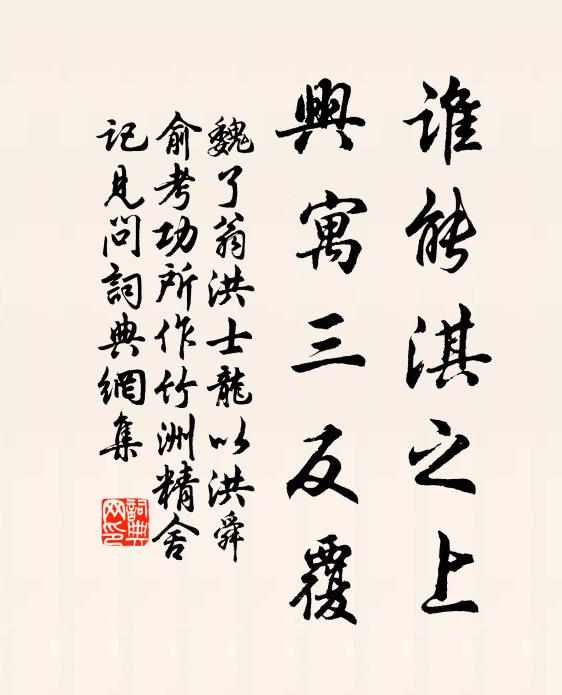 谁能淇之上
興寓三反覆
魏了翁洪士龍以洪舜
俞考功所作竹洲精舍
記見問詞典網集
詞典网印